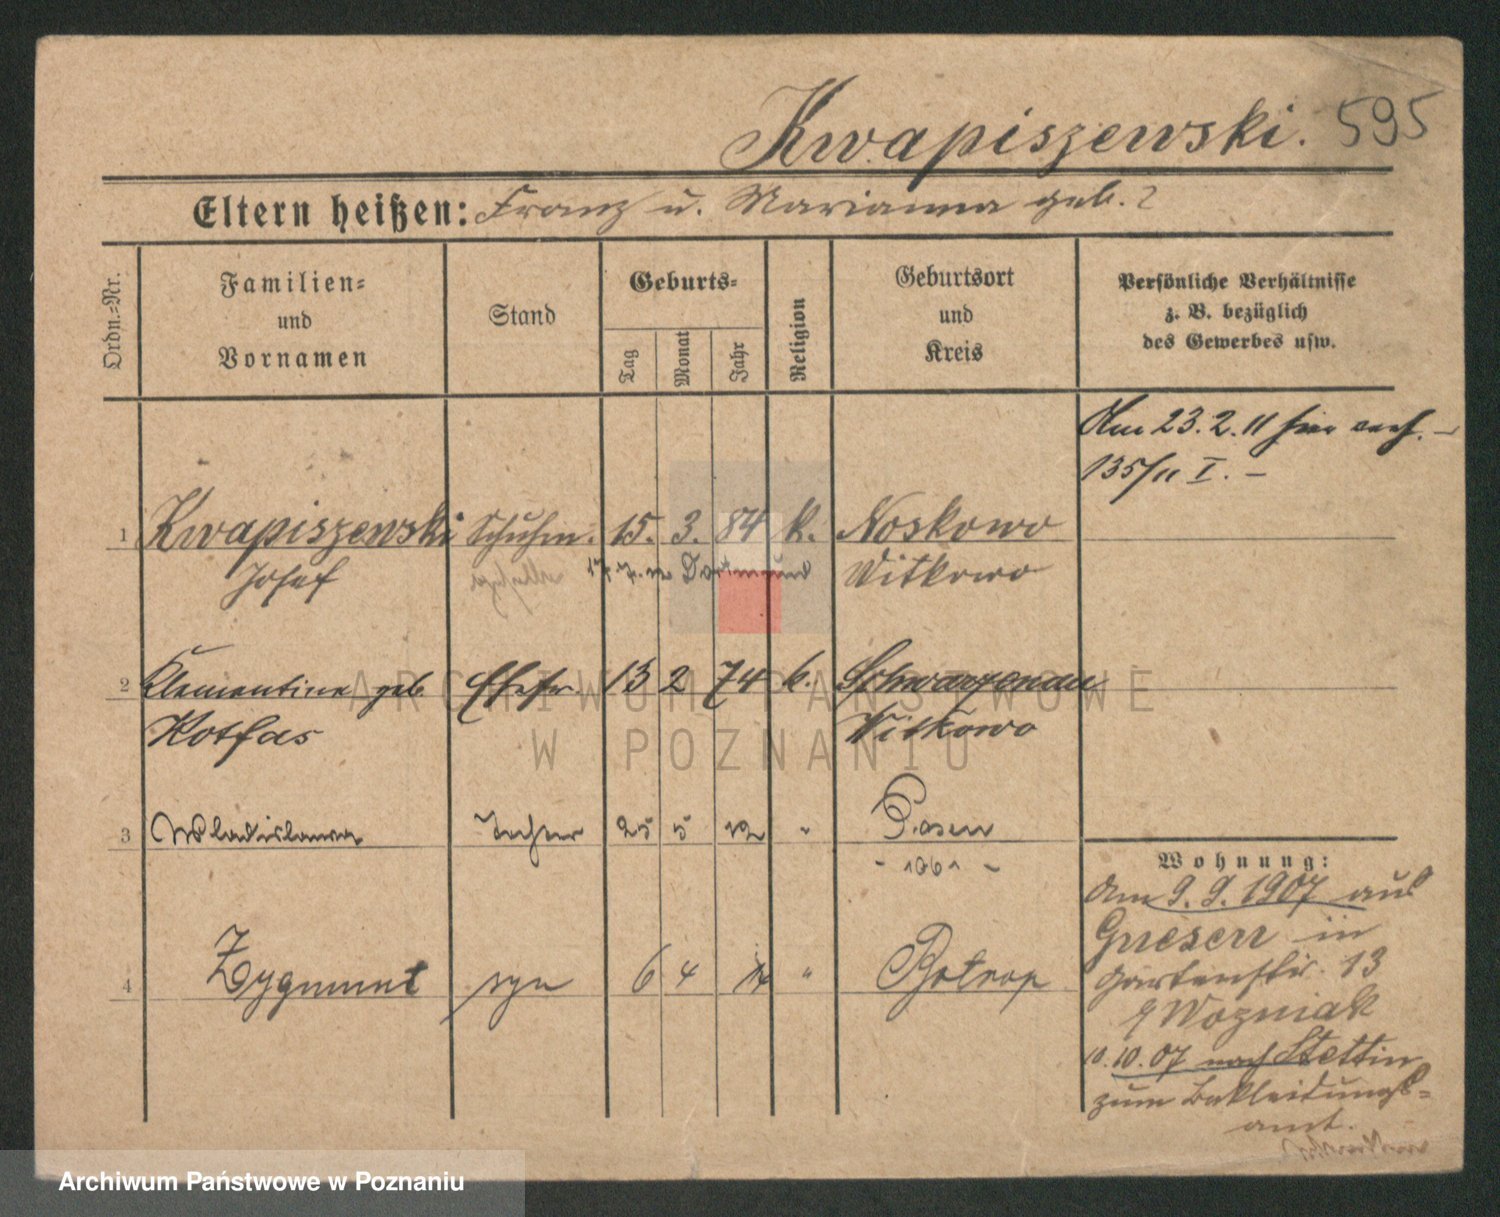 Kwapiszewski. 595
Eltern heißen: Franz u. Marianna geb. ?
Ordn.=Nr.
Familien=
und
Vornamen
Stand
Geburts=
Tag
Monat
Jahr
Religion
Geburtsort
und
Kreis
Persönliche Verhältnisse
z. B. bezüglich
des Gewerbes usw.
Am 23.2.11 hier
135/11 I. –
1 Kwapiszewski Schuhm. 15. 3. 84 k. Noskowo
Josef Dortmund Witkowo
2 Klementine geb. Ehefr. 13 2 74 k. Schwarzenau
Kotfas Witkowo
3 Wladislawa Tochter 25 5 12 " Posen
4 Zygmunt syn 6 4 14 " Botrop
Wohnung:
Am 9.9.1907 aus
Gnesen in
Gartenstr. 13
Wozniak
10.10.07 nach Stettin
zum Bekleidungs=
amt.
ARCHIWUM PAŃSTWOWE
W POZNANIU
Archiwum Państwowe w Poznaniu